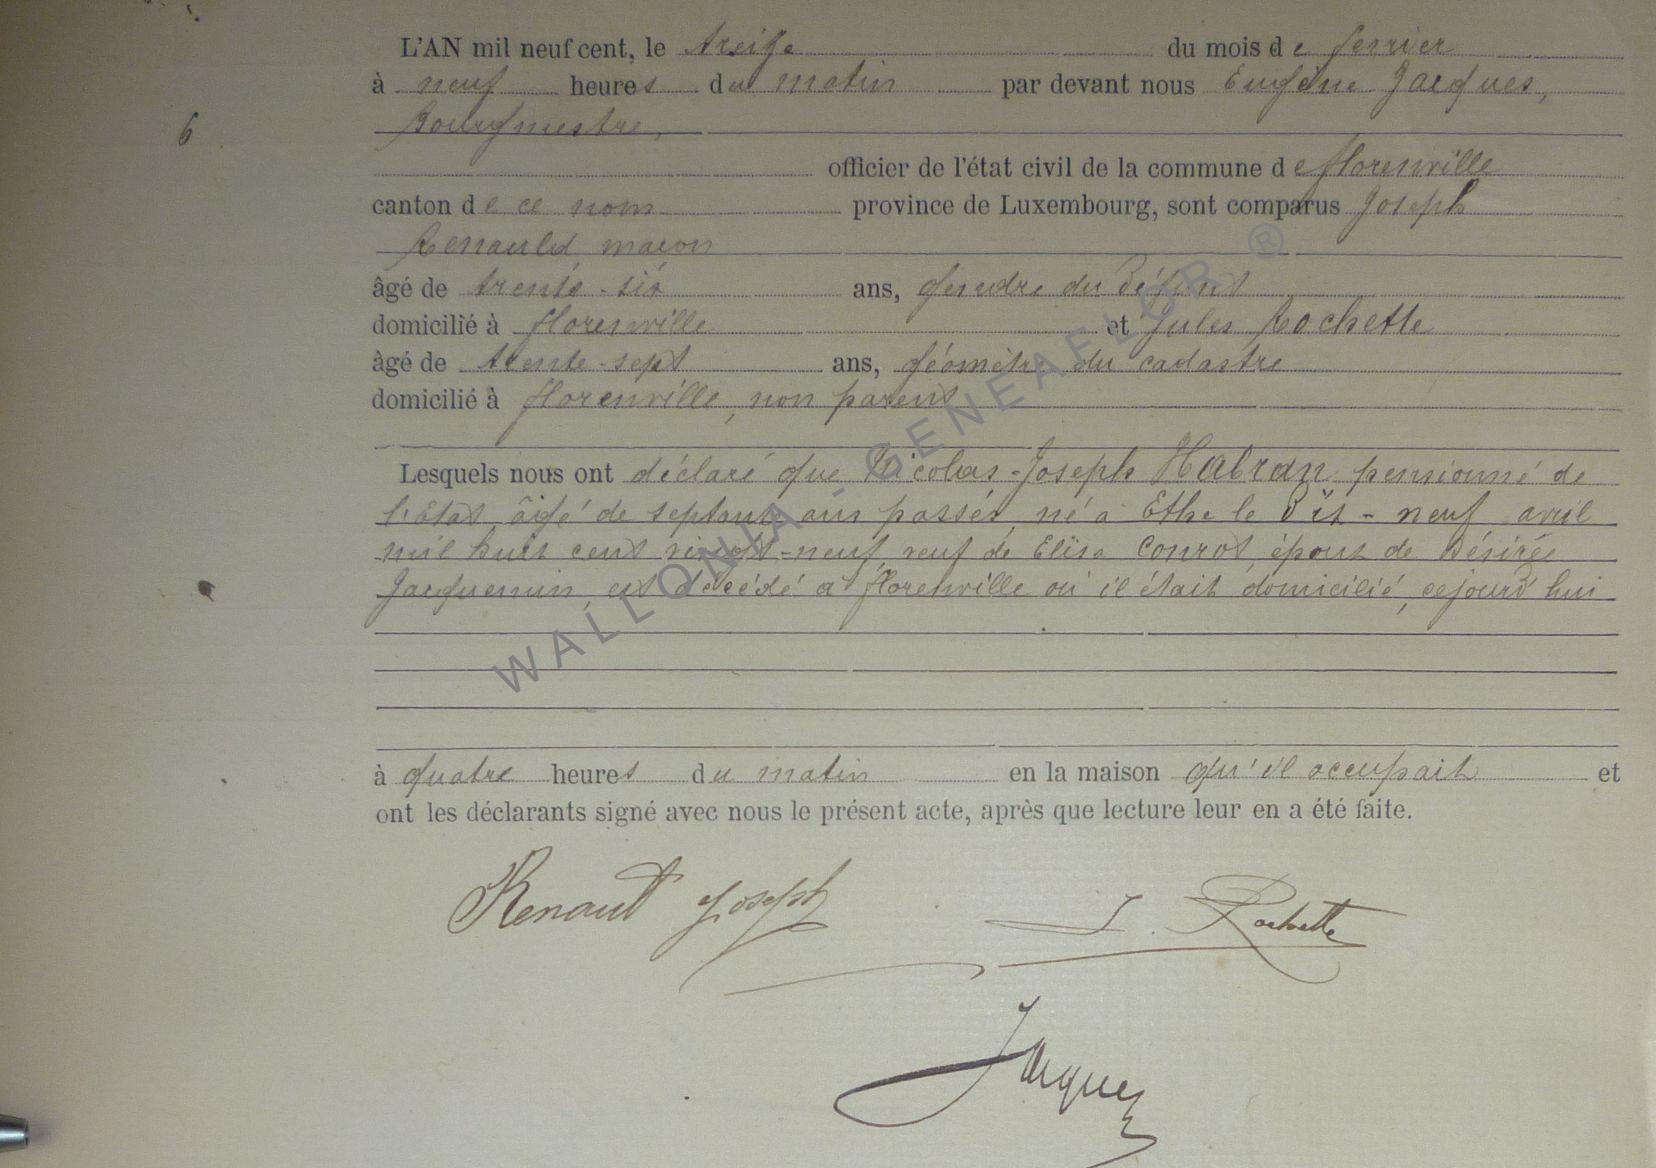 L'AN mil neuf cent, le treize du mois de fevrier
à neuf heures du matin par devant nous Eugène Jacques,
6
Bourgmestre,
officier de l'état civil de la commune de florenville
canton de ce nom province de Luxembourg, sont comparus Joseph
Renauld, maçon
âgé de trente-six ans, gendre du Défunt
domicilié à florenville et Jules Rochette
âgé de trente-sept ans, géomètre du cadastre
domicilié à florenville, non parent
Lesquels nous ont déclaré que Nicolas-Joseph Habran pensionné de
l'Etat, âgé de septante ans passés, né à Ethe le Dix-neuf avril
mil huit cent vingt-neuf, veuf de Elisa Conrot, époux de Désirée
Jacquemin, est décédé à florenville où il était domicilié, cejourd'hui
à quatre heures du matin en la maison qu'il occupait et
ont les déclarants signé avec nous le présent acte, après que lecture leur en a été faite.
Renaut Joseph J. Rochette
Jacques
WALLONIA-GENEAFLOR ®